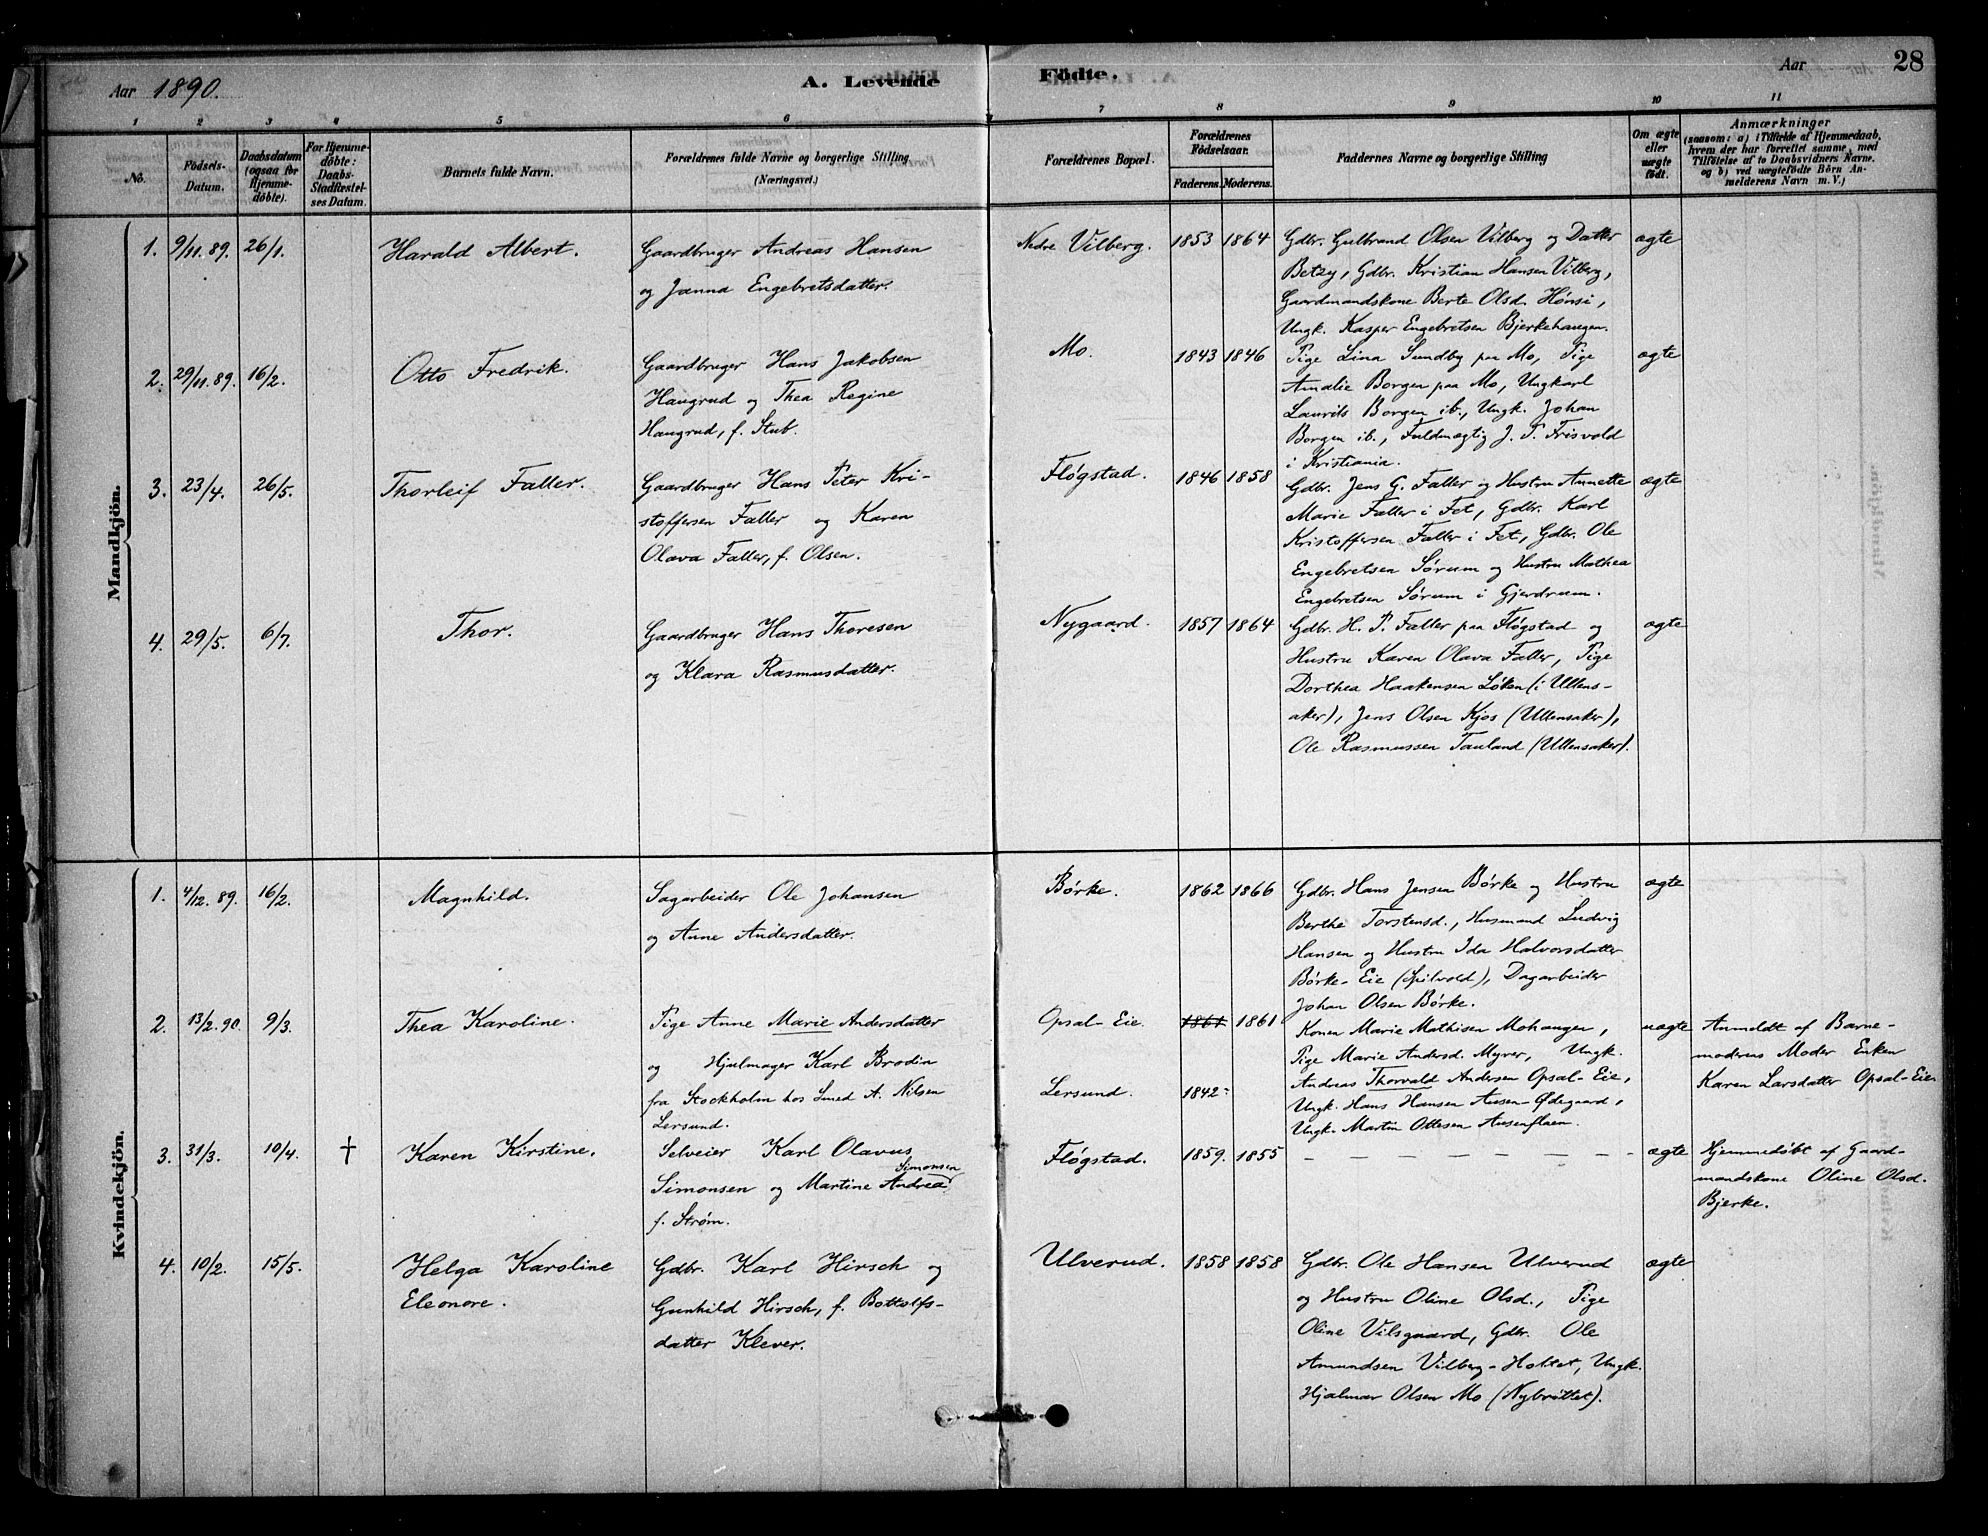 Aar 1890.
A. Levende Födte.
Aar
28
1 2 3 4 5 6 7 8 9 10 11
No.
Födsels-Datum.
Daabsdatum (ogsaa for Hjemme-döbte).
For Hjemme-döbte: Daabs-Stadfæstel-ses Datum.
Barnets fulde Navn.
Forældrenes fulde Navne og borgerlige Stilling (Næringsvei.)
Forældrenes Bopæl.
Forældrenes Födselsaar.
Faderens. Moderens.
Faddernes Navne og borgerlige Stilling
Om ægte eller uægte født.
Anmærkninger
(saasom: a) i Tilfælde af Hjemmedaab,
hvem der har forrettet samme, med
Tilföielse af to Daabsvidners Navne,
og b) ved uægtefödte Börn An-
melderens Navn m. V.)
Mandkjön.
1. 9/11. 89. 26/1.
Harald Albert.
Gaardbruger Andreas Hansen
og Janna Engebretsdatter.
Nedre Vilberg.
1853 1864
Gdbr. Gulbrand Olsen Vilberg og Datter
Betzy, Gdbr. Kristian Hansen Vilberg,
Gaardmandskone Berte Olsd. Hønsi,
Ungk. Kasper Engebretsen Bjerkehaugen.
ægte
2. 29/11. 89. 16/2.
Otto Fredrik.
Gaardbruger Hans Jakobsen
Haugrud og Thea Regine
Haugrud, f. Stub.
Mo.
1843 1846
Pige Lina Sundby paa Mo, Pige
Amalie Borgen paa Mo, Ungkarl
Laurits Borgen ib., Ungk. Johan
Borgen ib., Fuldmægtig J. P. Frisvold
i Kristiania.
ægte
3. 23/4. 26/5.
Thorleif Faller.
Gaardbruger Hans Peter Kri-
stoffersen Faller og Karen
Olava Faller, f. Olsen.
Fløgstad.
1846 1858
Gdbr. Jens G. Faller og Hustru Annette
Marie Faller i Fet, Gdbr. Karl
Kristoffersen Faller i Fet, Gdbr. Ole
Engebretsen Sørum og Hustru Mathea
Engebretsen Sørum i Gjerdrum.
ægte
4. 29/5. 6/7.
Thor.
Gaardbruger Hans Thoresen
og Klara Rasmusdatter.
Nygaard.
1857 1864
Gdbr. H. P. Faller paa Fløgstad og
Hustru Karen Olava Faller, Pige
Dorthea Haakensen Løken (i Ullens-
aker), Jens Olsen Kjos (Ullensaker),
Ole Rasmussen Tauland (Ullensaker).
ægte
Kvindekjön.
1. 4/12. 89. 16/2.
Magnhild.
Sagarbeider Ole Johansen
og Anne Andersdatter.
Børke.
1862 1866
Gdbr. Hans Jensen Børke og Hustru
Berthe Torstensd., Husmand Ludvig
Hansen og Hustru Ida Halvorsdatter
Børke-Eie (Spilvold), Dagarbeider
Johan Olsen Børke.
ægte
2. 13/2. 90. 9/3.
Thea Karoline.
Pige Anne Marie Andersdatter
og Hjulmager Karl Brodin
fra Stockholm hos Smed A. Nilsen
Lersund.
Opsal-Eie.
Lersund.
1861 1861
1842
Konen Marie Mathisen Mohaugen,
Pige Marie Andersd. Myrer, Ungk.
Andreas Thorvald Andersen Opsal-Eie,
Ungk. Hans Hansen Ausen-Ødegaard,
Ungk. Martin Ottesen Ausenflaen.
uægte
Anmeldt af Barne-
moderens Moder Enken
Karen Larsdatter Opsal-Eie
3. 31/3. 10/4. †
Karen Kirstine.
Selveier Karl Olavus
Simonsen og Martine Andrea Simonsen
f. Strøm.
Fløgstad.
1859. 1855
– – – – – – –
ægte
Hjemmedøbt af Gaard-
mandskone Oline Olsd.
Bjerke.
4. 10/2. 15/5.
Helga Karoline
Eleonore.
Gdbr. Karl Hirsch og
Gunhild Hirsch, f. Bottolfs-
datter Klever.
Ulverud.
1858 1858
Gdbr. Ole Hansen Ulverud
og Hustru Oline Olsd., Pige
Oline Vilsgaard, Gdbr. Ole
Amundsen Vilberg-Holtet, Ungk.
Hjalmar Olsen Mo (Nybrøttet).
ægte